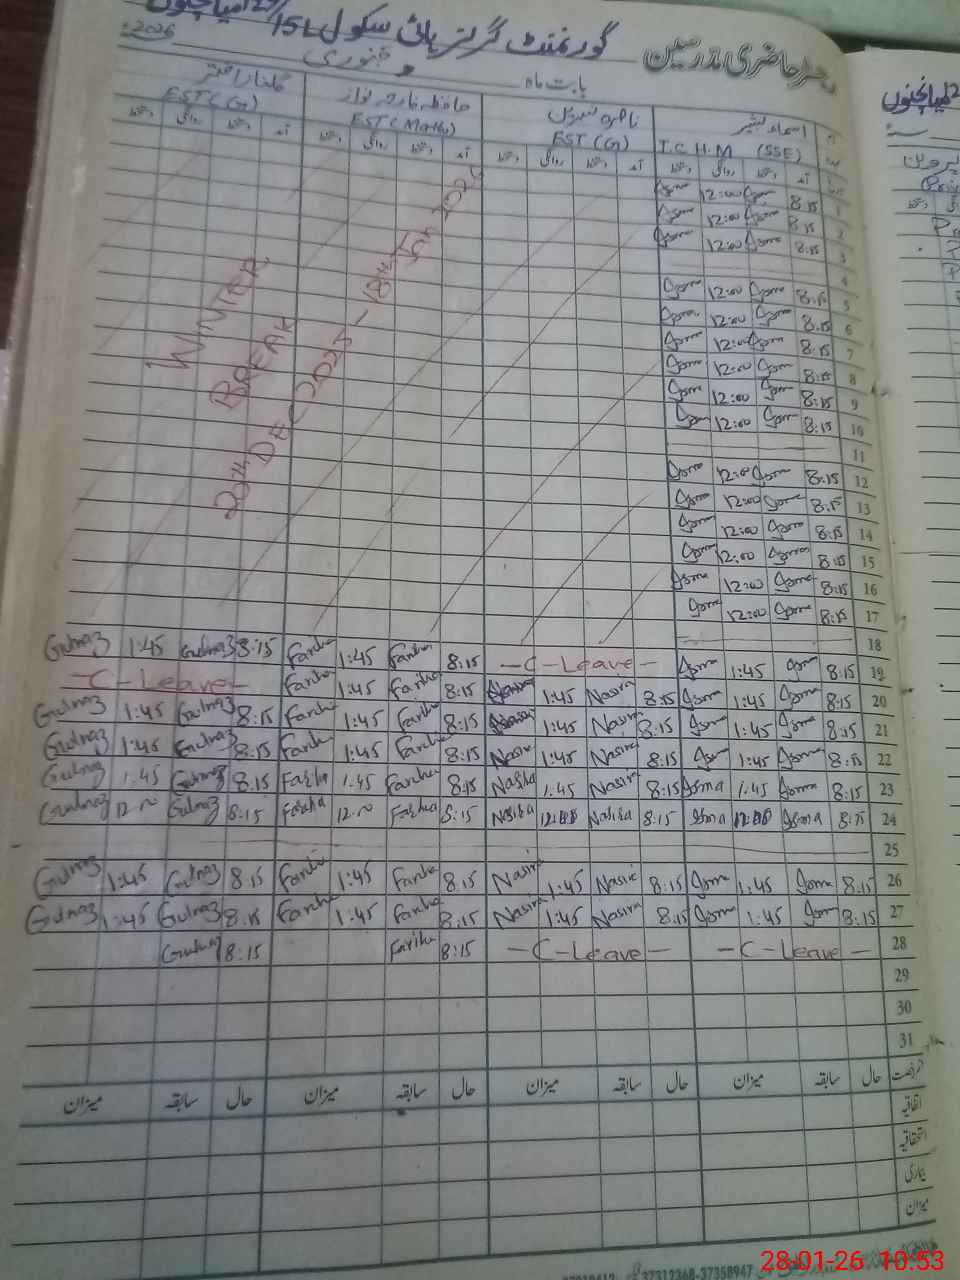 رجسٹر حاضری مدرسین گورنمنٹ گرلز ہائی سکول 15L/129 میاں چنوں
بابت ماہ جنوری 2026
اسماء بشیر ناصرہ نسرین حافظہ فارحہ نواز گلناز اختر
T.C H.M (SSE) EST (G) EST (Maths) EST (G)
آمد دستخط روانگی دستخط آمد دستخط روانگی دستخط آمد دستخط روانگی دستخط آمد دستخط روانگی دستخط
WINTER
BREAK
20th DEC 2025 - 18th Jan 2026
1 8:15 Asma 12:00 Asma
2 8:15 Asma 12:00 Asma
3 8:15 Asma 12:00 Asma
4
5 8:15 Asma 12:00 Asma
6 8:15 Asma 12:00 Asma
7 8:15 Asma 12:00 Asma
8 8:15 Asma 12:00 Asma
9 8:15 Asma 12:00 Asma
10 8:15 Asma 12:00 Asma
11
12 8:15 Asma 12:00 Asma
13 8:15 Asma 12:00 Asma
14 8:15 Asma 12:00 Asma
15 8:15 Asma 12:00 Asma
16 8:15 Asma 12:00 Asma
17 8:15 Asma 12:00 Asma
18
Gulnaz 1:45 Gulnaz 8:15 Fariha 1:45 Fariha 8:15 - C - Leave - Asma 1:45 Asma 8:15 19
- C - Leave - Fariha 1:45 Fariha 8:15 Nasira 1:45 Nasira 8:15 Asma 1:45 Asma 8:15 20
Gulnaz 1:45 Gulnaz 8:15 Fariha 1:45 Fariha 8:15 Nasira 1:45 Nasira 8:15 Asma 1:45 Asma 8:15 21
Gulnaz 1:45 Gulnaz 8:15 Fariha 1:45 Fariha 8:15 Nasira 1:45 Nasira 8:15 Asma 1:45 Asma 8:15 22
Gulnaz 1:45 Gulnaz 8:15 Fariha 1:45 Fariha 8:15 Nasira 1:45 Nasira 8:15 Asma 1:45 Asma 8:15 23
Gulnaz 12:00 Gulnaz 8:15 Fariha 12:00 Fariha 8:15 Nasira 12:00 Nasira 8:15 Asma 12:00 Asma 8:15 24
25
Gulnaz 1:45 Gulnaz 8:15 Fariha 1:45 Fariha 8:15 Nasira 1:45 Nasira 8:15 Asma 1:45 Asma 8:15 26
Gulnaz 1:45 Gulnaz 8:15 Fariha 1:45 Fariha 8:15 Nasira 1:45 Nasira 8:15 Asma 1:45 Asma 8:15 27
Gulnaz 8:15 Fariha 8:15 - C - Leave - - C - Leave - 28
29
30
31
رخصت حال سابقہ میزان حال سابقہ میزان حال سابقہ میزان حال سابقہ میزان
اتفاقیہ
استحقاقیہ
بیماری
میزان
37312368-37358947
28-01-26 10:53